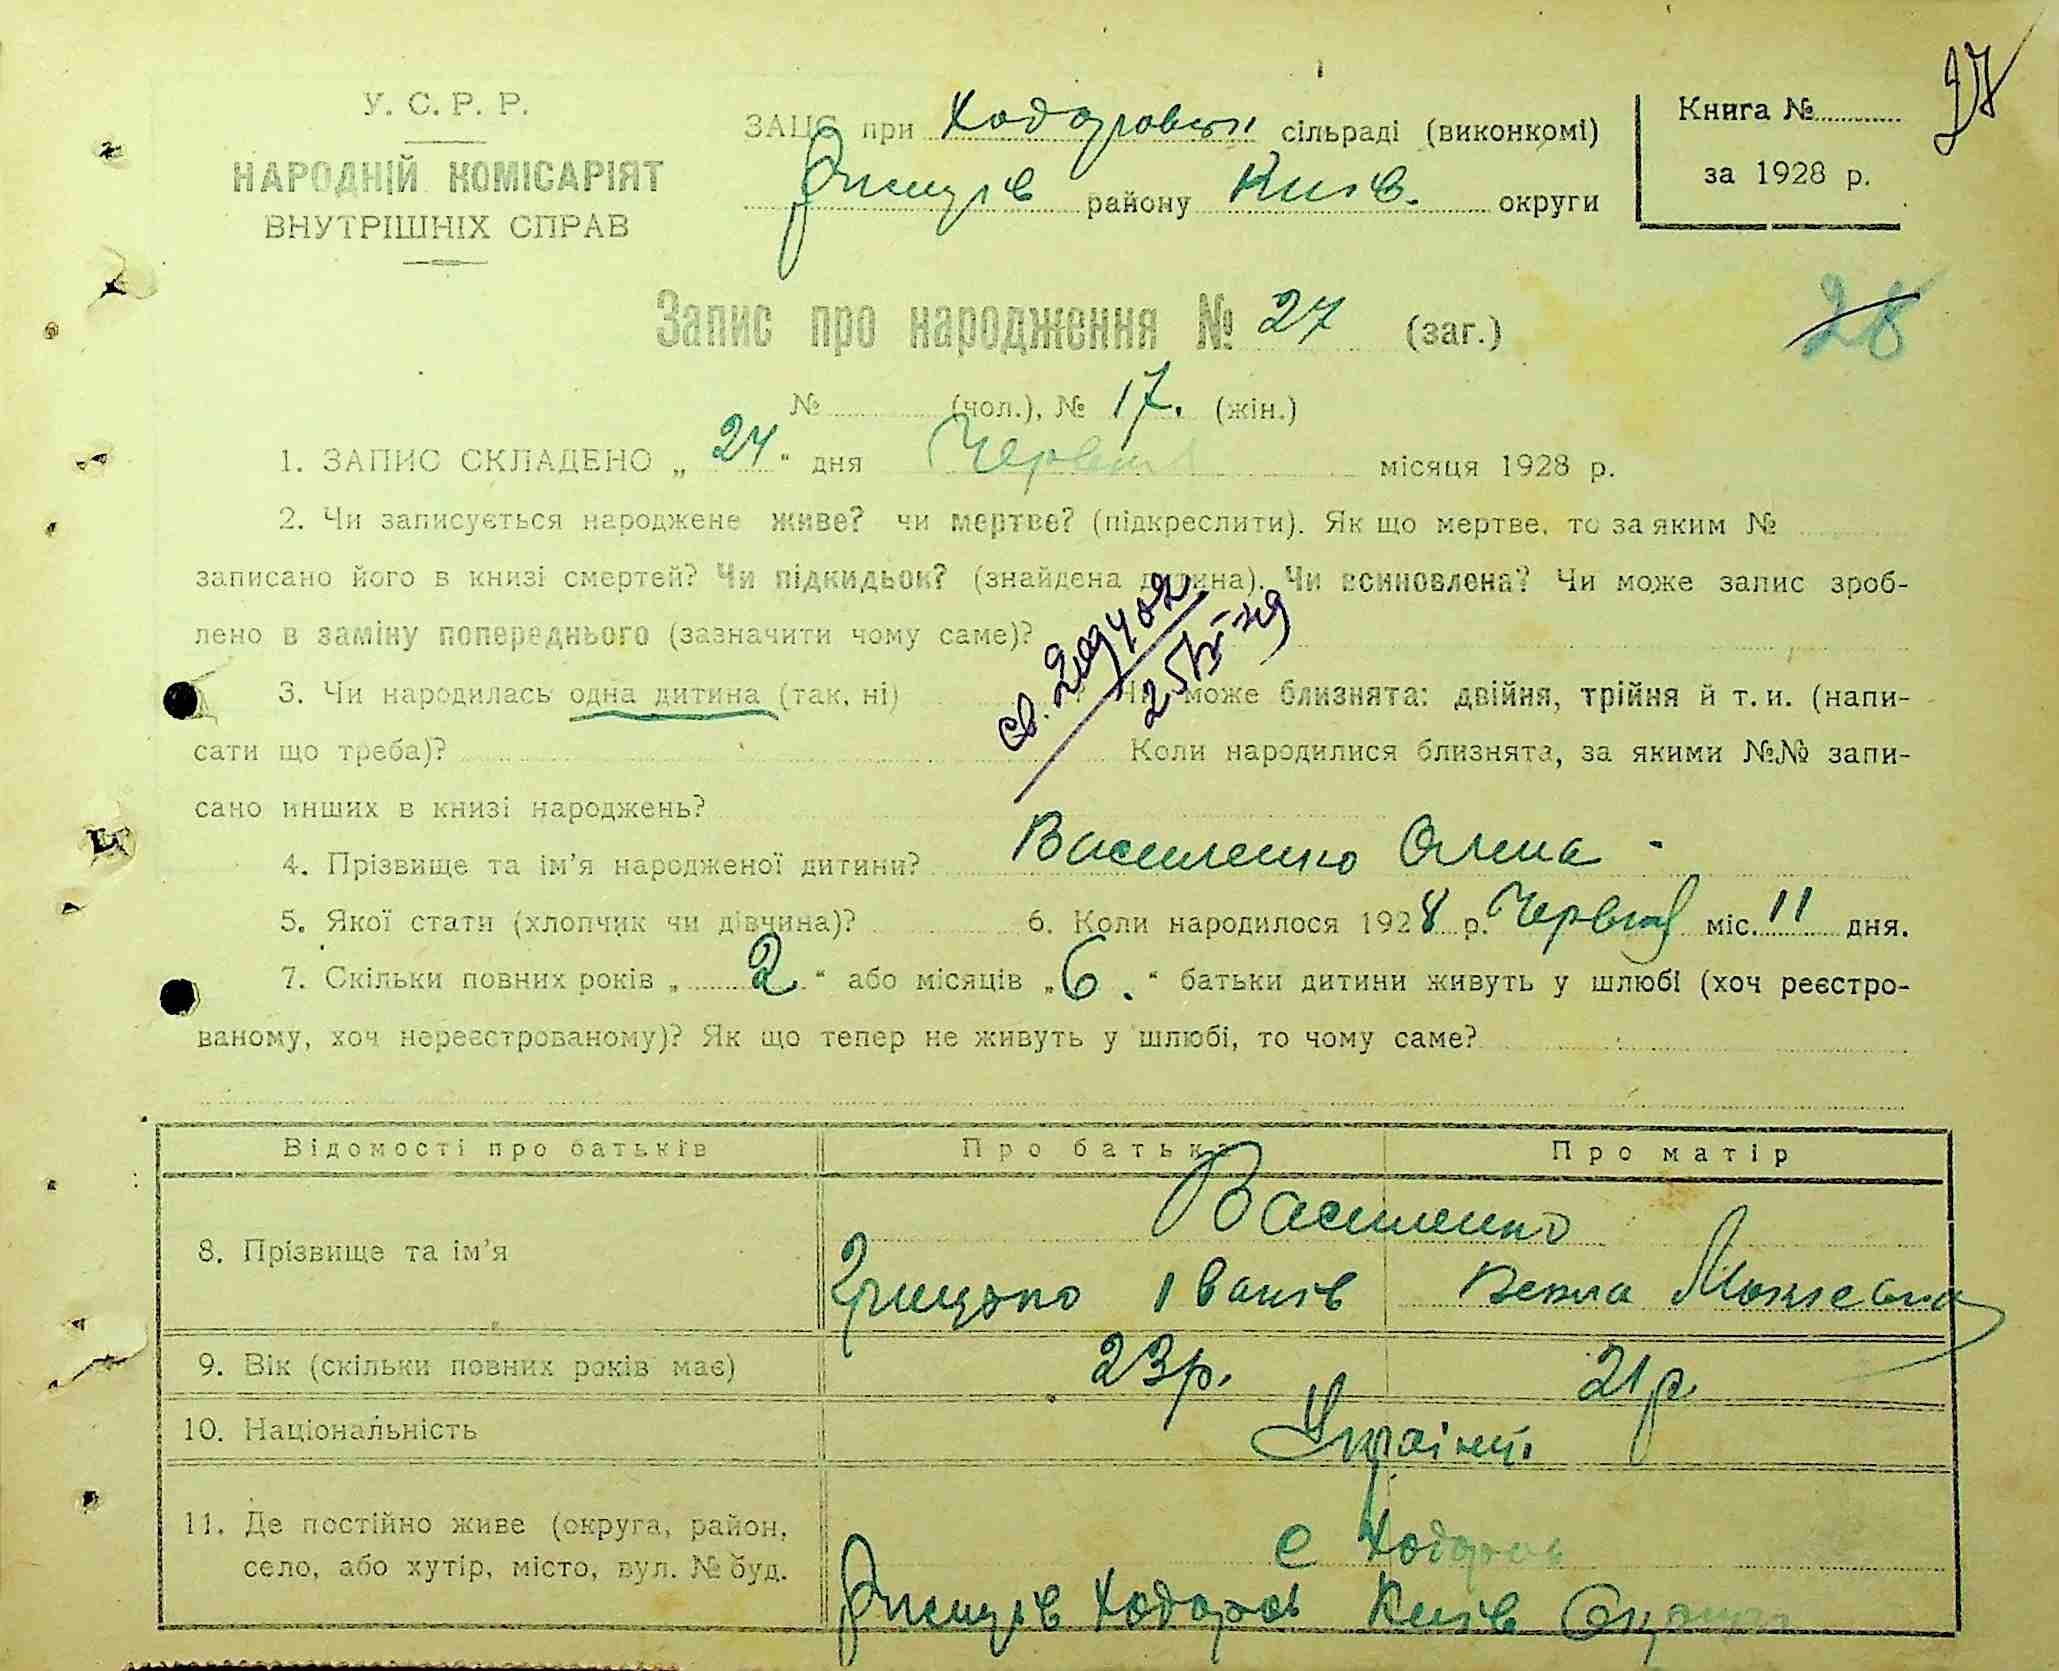 27
У. С. Р. Р.
НАРОДНІЙ КОМІСАРІЯТ
ВНУТРІШНІХ СПРАВ
ЗАЦС при Ходоровськ сільраді (виконкомі)
Ржищів району Київ. округи
Книга №
за 1928 р.
Запис про народження № 27 (заг.)
28
№ (чол.), № 17. (жін.)
1. ЗАПИС СКЛАДЕНО „ 24 “ дня Червня місяця 1928 р.
2. Чи записується народжене живе? чи мертве? (підкреслити). Як що мертве, то за яким №
записано його в книзі смертей? Чи підкидьок? (знайдена дитина). Чи всиновлена? Чи може запис зроб-
лено в заміну попереднього (зазначити чому саме)?
3. Чи народилась одна дитина (так, ні) Чи може близнята: двійня, трійня й т. и. (напи-
сати що треба)? Коли народилися близнята, за якими №№ запи-
сано инших в книзі народжень?
4. Прізвище та ім’я народженої дитини? Василенко Олена
5. Якої стати (хлопчик чи дівчина)? 6. Коли народилося 1928 р. Червня міс. 11 дня.
7. Скільки повних років „ 2 “ або місяців „ 6. “ батьки дитини живуть у шлюбі (хоч реєстро-
ваному, хоч нереєстрованому)? Як що тепер не живуть у шлюбі, то чому саме?
Відомості про батьків Про батька Про матір
Василенко
8. Прізвище та ім’я
Грицько Іванів Векла Мокіевна
9. Вік (скільки повних років має) 23р. 21р.
10. Національність Україн.
11. Де постійно живе (округа, район,
село, або хутір, місто, вул. № буд.
с Ходоров
Ржищів Ходоров Київ Округи